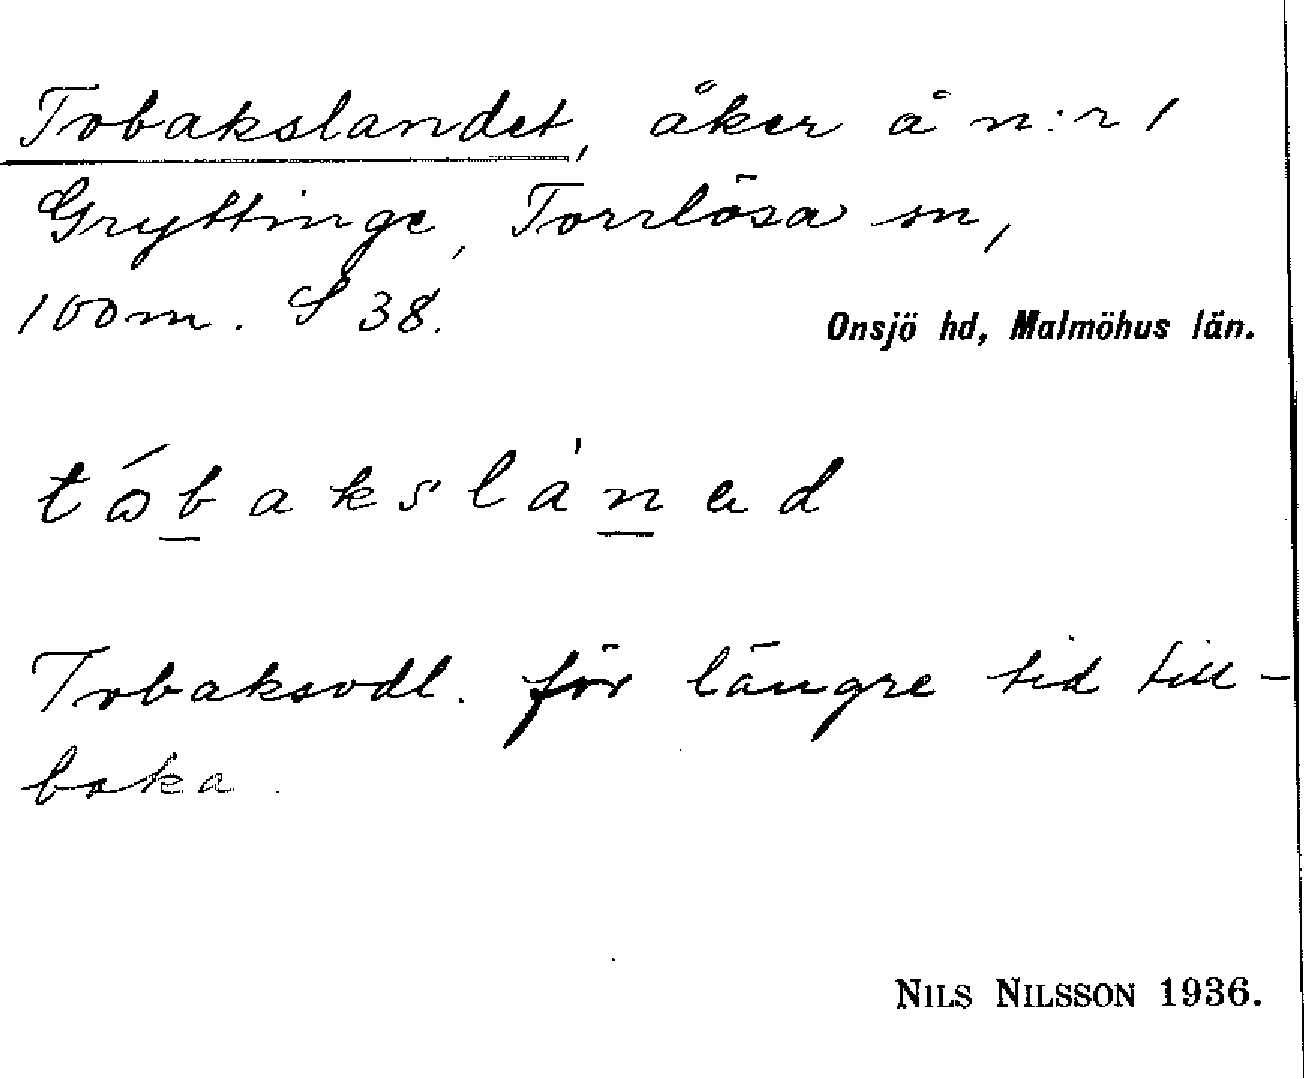 Tobakslandet, åker å n:r 1
Gryttinge, Torrlösa sn,
100m. S 38.
Onsjö hd, Malmöhus län.
tóbakslànad
Tobaksodl. för längre tid till-
baka.
NILS NILSSON 1936.